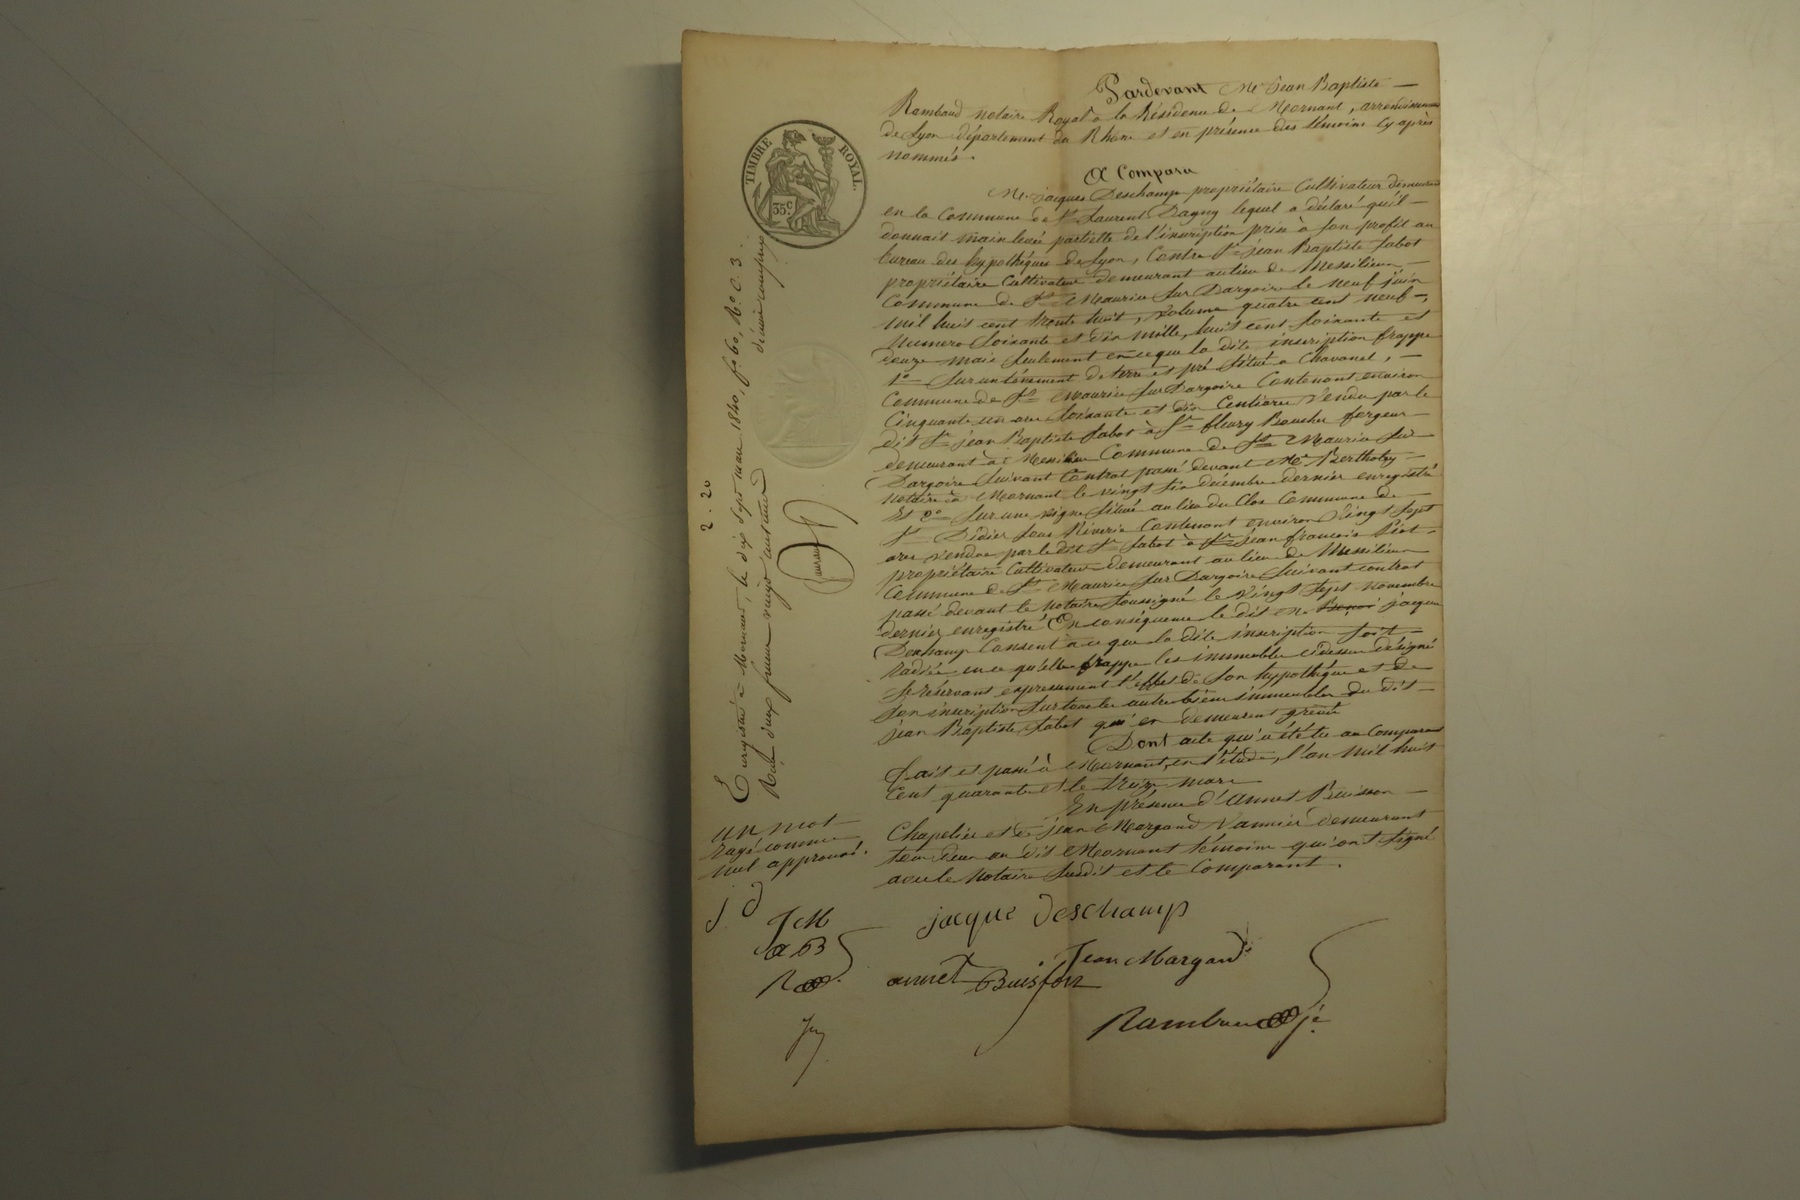 Pardevant Me Jean Baptiste —
Rambaud notaire Royal à la Résidence de Mornant, arrondissement
de Lyon département du Rhône et en présence des témoins cy après
nommés.
A Comparu
Mr. jacques Deschamp propriétaire Cultivateur demeurant
en la Commune de St Laurent Dagny lequel a déclaré qu'il —
donnait main levée partielle de l'inscription prise à son profit au
bureau des hypothéques de Lyon, Contre Sr jean Baptiste Jabot
propriétaire Cultivateur demeurant au lieu de Messilieux —
Commune de St Maurice sur Dargoire le neuf juin
mil huit cent trente huit, volume quatre cent neuf —,
Numero soixante et dix mille, huit cent soixante et
douze mais seulement en ce que la dite inscription frappe
1o — sur un ténement de terre et pré situé a Chavanel, —
Commune de St Maurice sur Dargoire Contenant environ
Cinquante un are soixante et dix Centiares vendu par le
dit Sr jean Baptiste Jabot à Sr fleury Boucher forgeur —
demeurant à Messilieux Commune de St Maurice sur
Dargoire suivant Contrat passé devant Me Bertholey —
notaire à Mornant le vingt six décembre dernier enregistré
Et 2o — sur une vigne située au lieu du Clos Commune de —
St Didier sous Riverie Contenant environ Vingt sept
ares vendue par le dit Sr Jabot à Sr jean francois Piot —
propriétaire Cultivateur demeurant au lieu de Messilieux
Commune de St Maurice sur Dargoire suivant contrat
passé devant le notaire soussigné le Vingt sept novembre
dernier enregistré En conséquence le dit Me jacques
Deschamp Consent à ce que la dite inscription soit —
Radiée en ce qu'elle frappe les immeubles cidessus désigné
se réservant expressément l'effet de son hypothéque et de
son inscription sur tous les autres biens immeubles du dit —
jean Baptiste Jabot qui en demeurent grevés
Dont acte qui a été lu au Comparant
Fait et passé à Mornant, en l'étude, l'an mil huit
Cent quarante et le treize mars —
En présence d'Annet Buisson —
Chapelier et de jean Margand Vannier demeurant
tous deux au dit Mornant témoins qui ont signé
avec le Notaire susdit et le Comparant.
jacque Deschamp
Jean Margand
annet Buisson
Rambaud
TIMBRE ROYAL.
35c.
Enregistré à Mornant, le dix sept mars 1840, fo 60, Ro C. 3.
Reçu deux francs vingt centimes
décime compris
2.20
un mot
rayé comme
nul approuvé.
j D
J M
a B
R